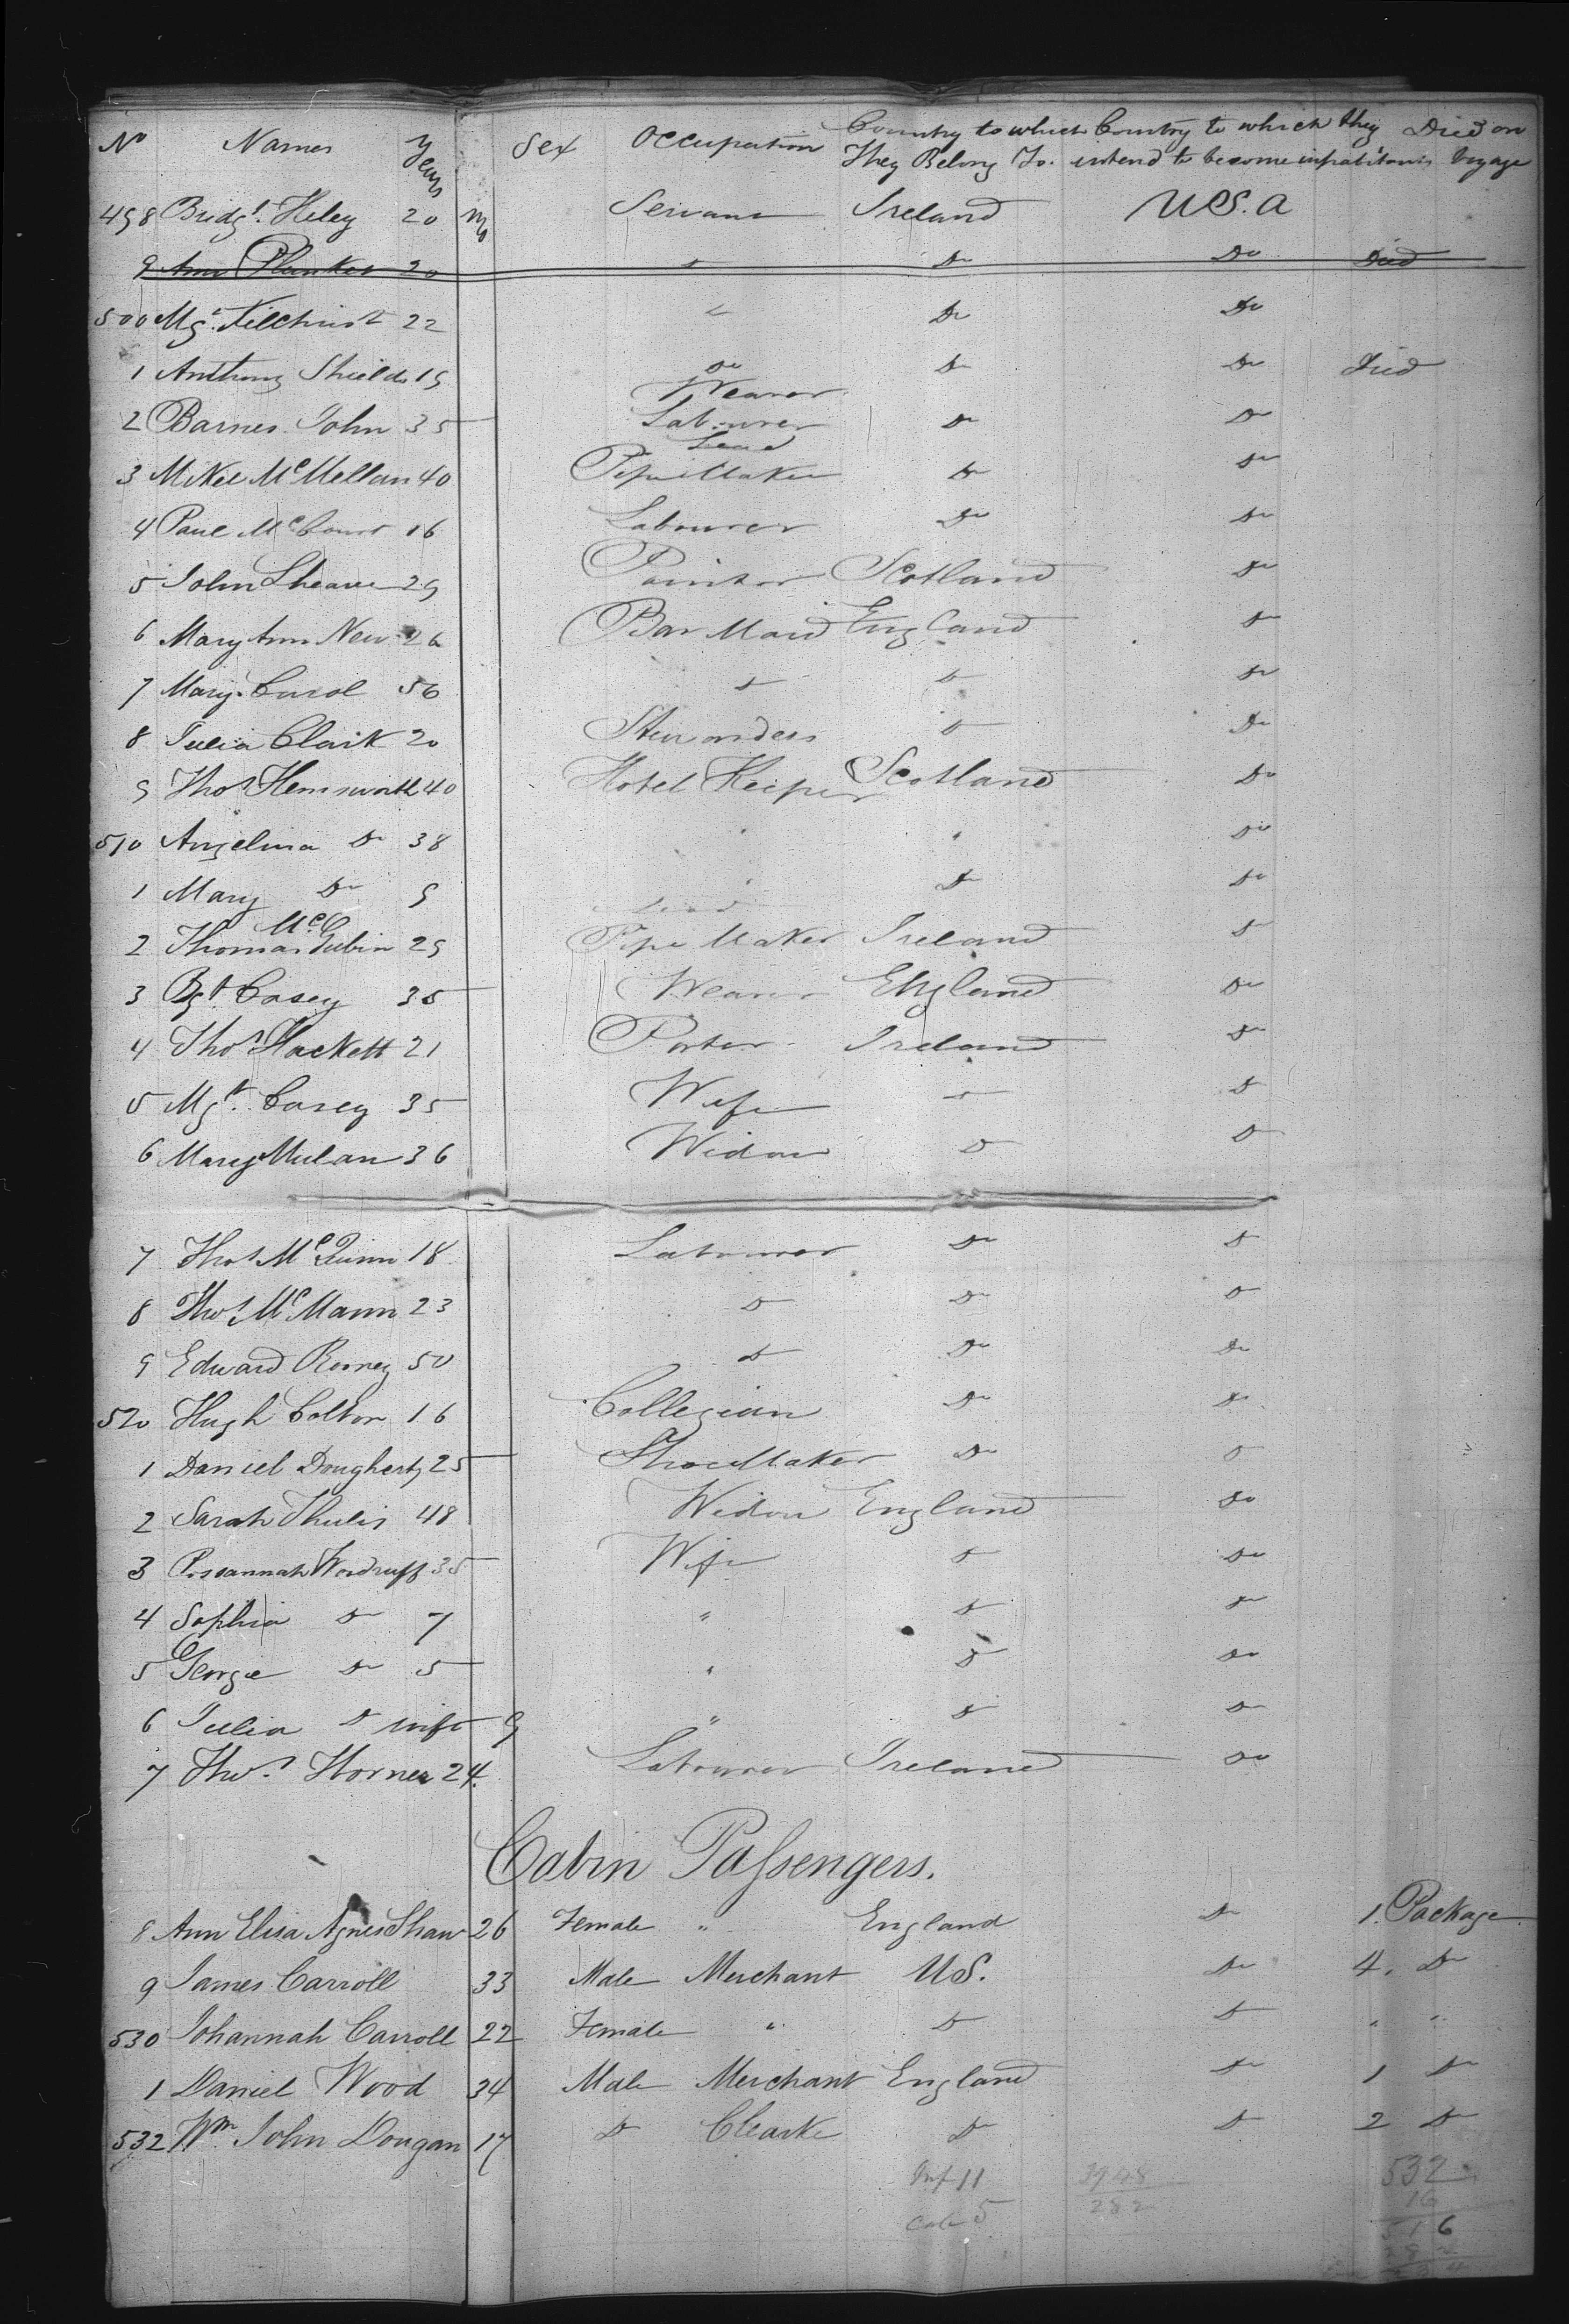 No Names Years Mo Sex Occupation Country to which They Belong To. Country to which they intend to become inhabitants Died on Voyage
498 Bridgt. Heley 20 Servant Ireland U.S.A
9 Ann Plunket 20 " Do Do Died
500 Mgt. Kilchrist 22 " Do Do
1 Anthony Shields 19 Do Do Do Died
Weaver
2 Barnes John 35 Labourer Do Do
Lead
3 Mikel McMellan 40 Pipe Maker Do Do
4 Paul McCourt 16 Labourer Do Do
5 John Sheave 29 Painter Scotland Do
6 Mary Ann New 26 Bar Maid England Do
7 Mary Carol 56 Do Do Do
8 Julia Clark 20 Stewardess Do Do
9 Thos Hemsworth 40 Hotel Keeper Scotland Do
510 Angelina Do 38 " " Do
1 Mary Do 9 " Do Do
Lead
2 Thomas McGubin 29 Pipe Maker Ireland Do
3 Bgt Casey 35 Weaver England Do
4 Thos Hackett 21 Porter Ireland Do
5 Mgt. Casey 35 Wife Do Do
6 Mary Mulan 36 Widow Do Do
7 Thos McQuinn 18 Labourer Do Do
8 Thos McMann 23 Do Do Do
9 Edward Rooney 50 Do Do Do
520 Hugh Colton 16 Collegian Do Do
1 Daniel Dougherty 25 Shoe Maker Do Do
2 Sarah Thulis 48 Widow England Do
3 Rossannah Woodruff 35 Wife Do Do
4 Sophia Do 7 " Do Do
5 George Do 5 " Do Do
6 Julia Do inft 9 " Do Do
7 Thos. Horner 24. Labourer Ireland Do
Cabin Passengers.
8 Ann Elisa Agnes Shaw 26 Female " England Do 1. Package
9 James Carroll 33 Male Merchant U.S. Do 4. Do
530 Johannah Carroll 22 Female " Do Do " "
1 Daniel Wood 34 Male Merchant England Do 1 Do
532 Wm. John Dougan 17 Do Clearke Do Do 2 Do
Inf 11 3948 532
Cab 5 282 16
516